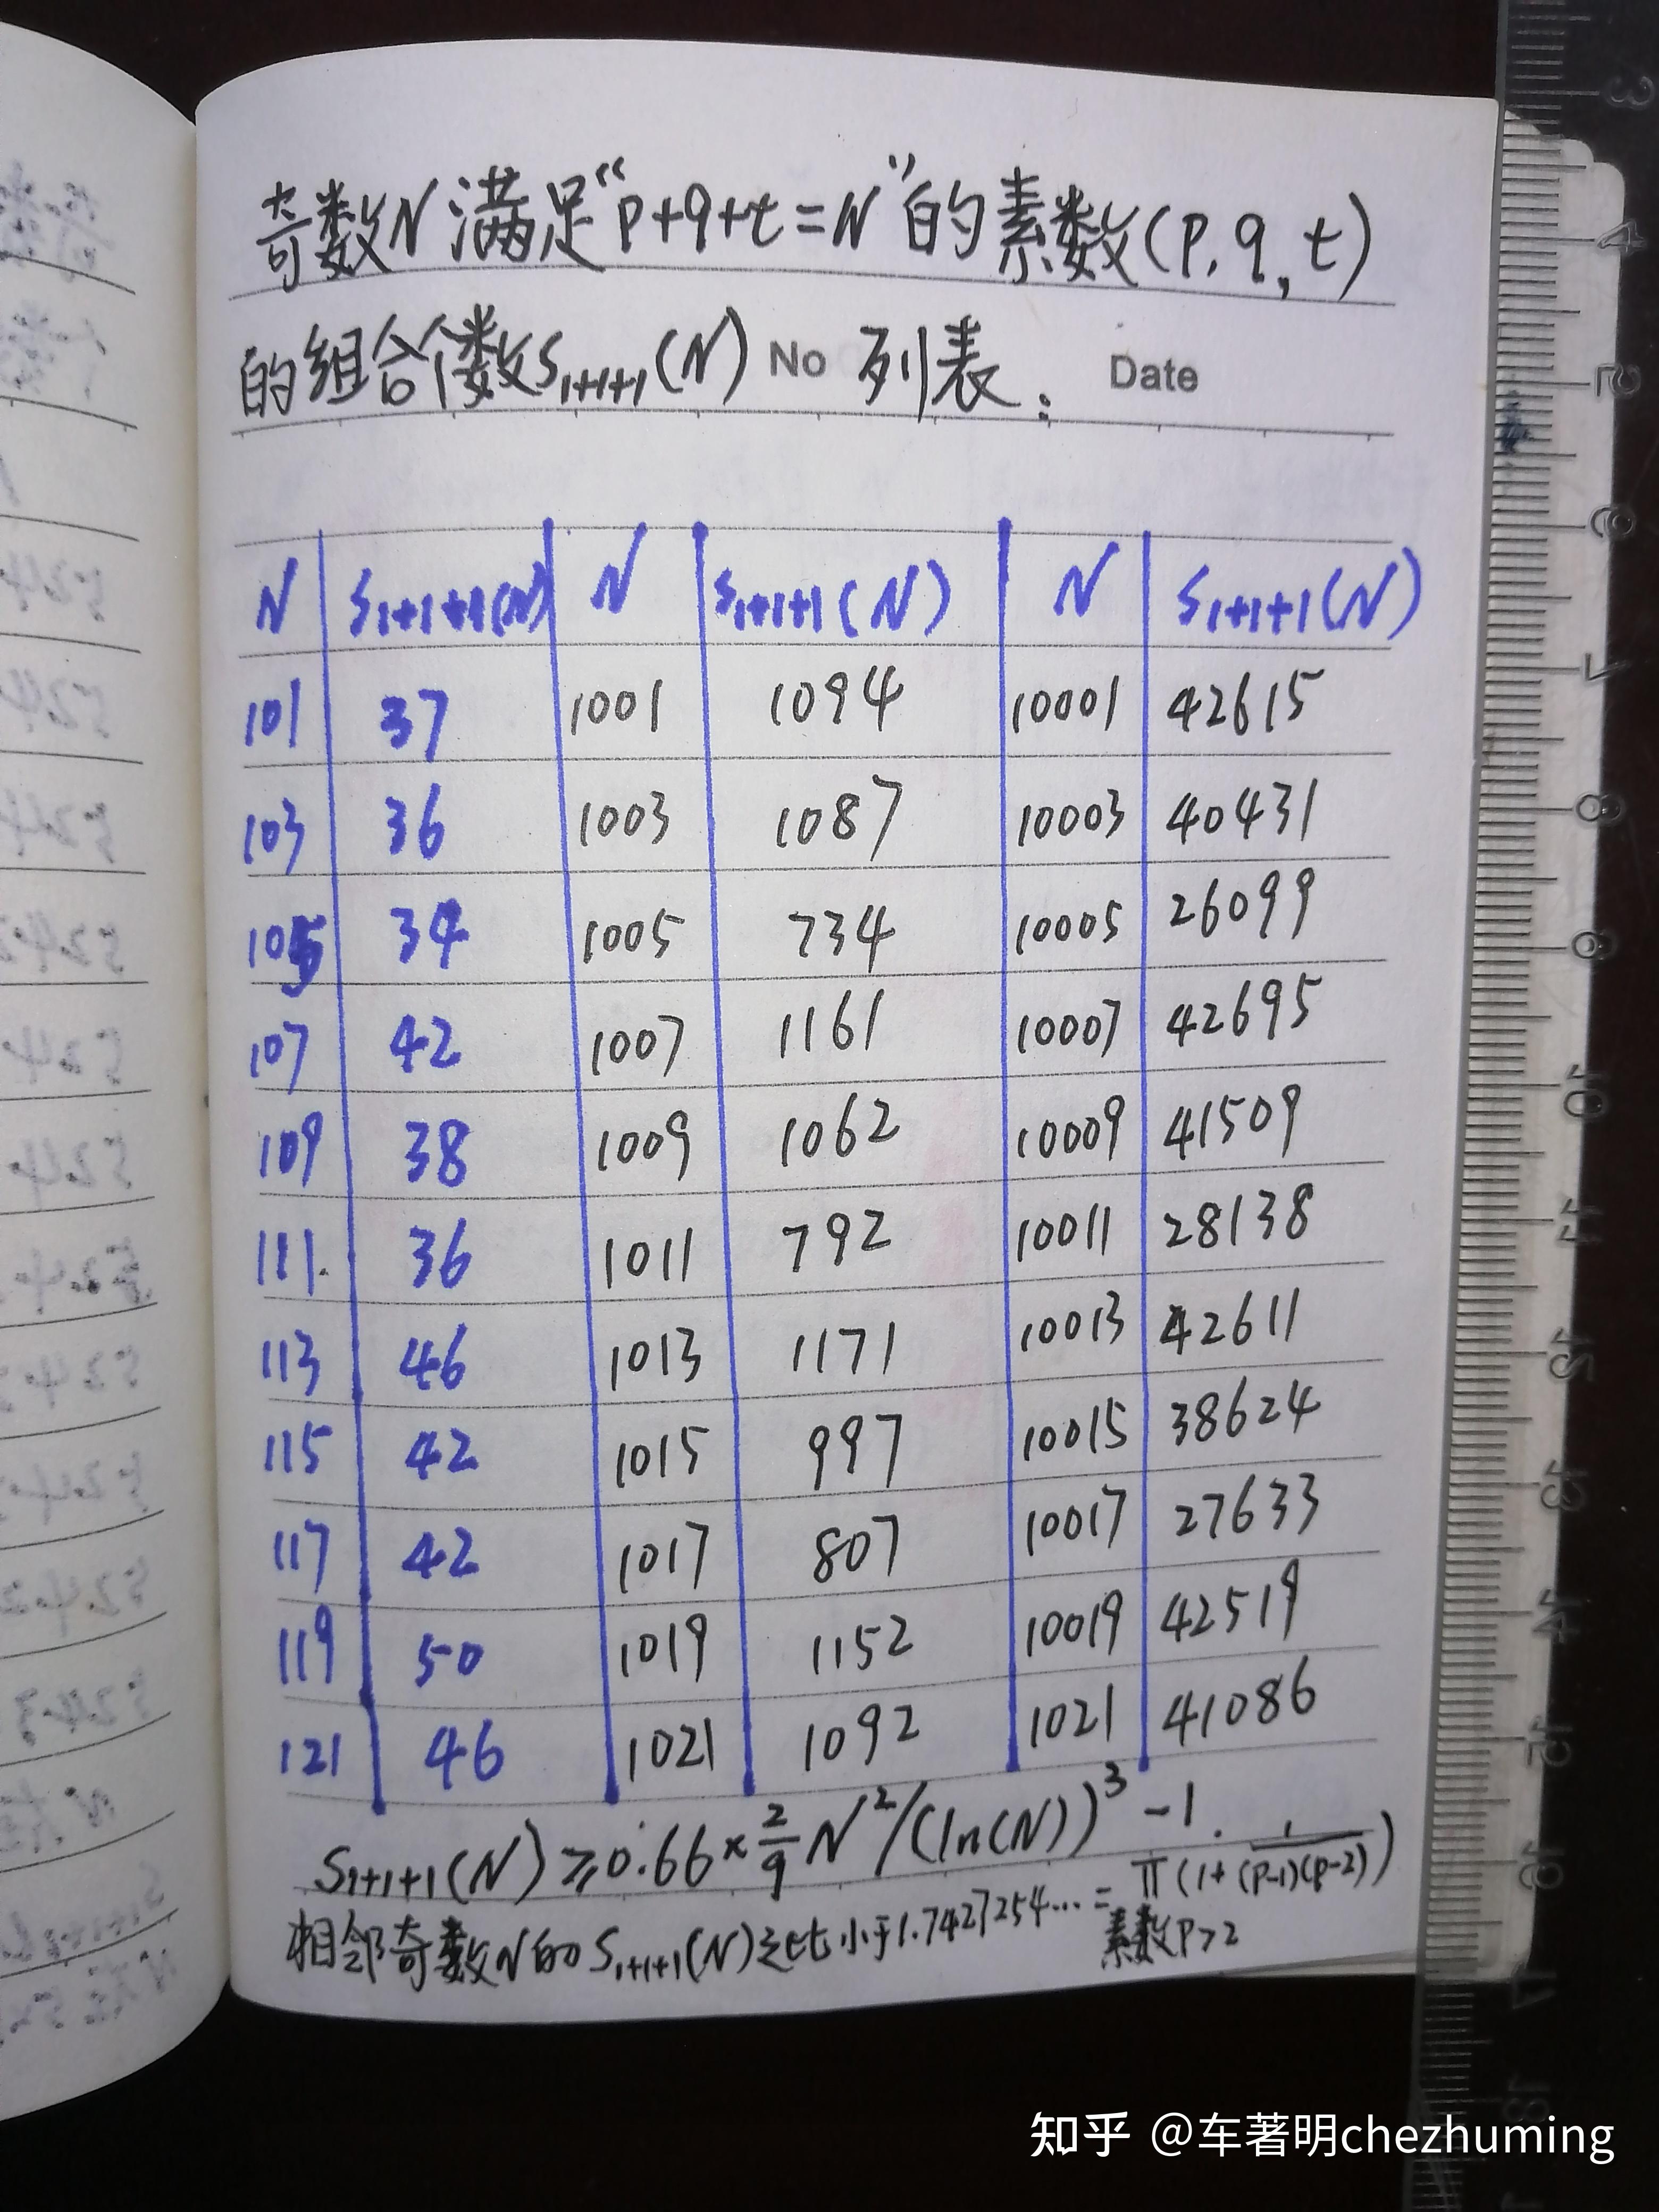 奇数N满足“p+q+t=N”的素数(p,q,t)
的组合个数S₁₊₁₊₁(N) No 列表: Date
N S₁₊₁₊₁(N) N S₁₊₁₊₁(N) N S₁₊₁₊₁(N)
101 37 1001 1094 10001 42615
103 36 1003 1087 10003 40431
105 34 1005 734 10005 26099
107 42 1007 1161 10007 42695
109 38 1009 1062 10009 41509
111. 36 1011 792 10011 28138
113 46 1013 1171 10013 42611
115 42 1015 997 10015 38624
117 42 1017 807 10017 27633
119 50 1019 1152 10019 42519
121 46 1021 1092 1021 41086
S₁₊₁₊₁(N)≥0.66×2/9 N²/(ln(N))³-1.
相邻奇数N的S₁₊₁₊₁(N)之比小于1.7427254…=π(1+1/((p-1)(p-2)))
素数P>2
3
4
5
6
7
8
9
10
11
12
13
14
15
16
17
18
知乎 @车著明chezhuming